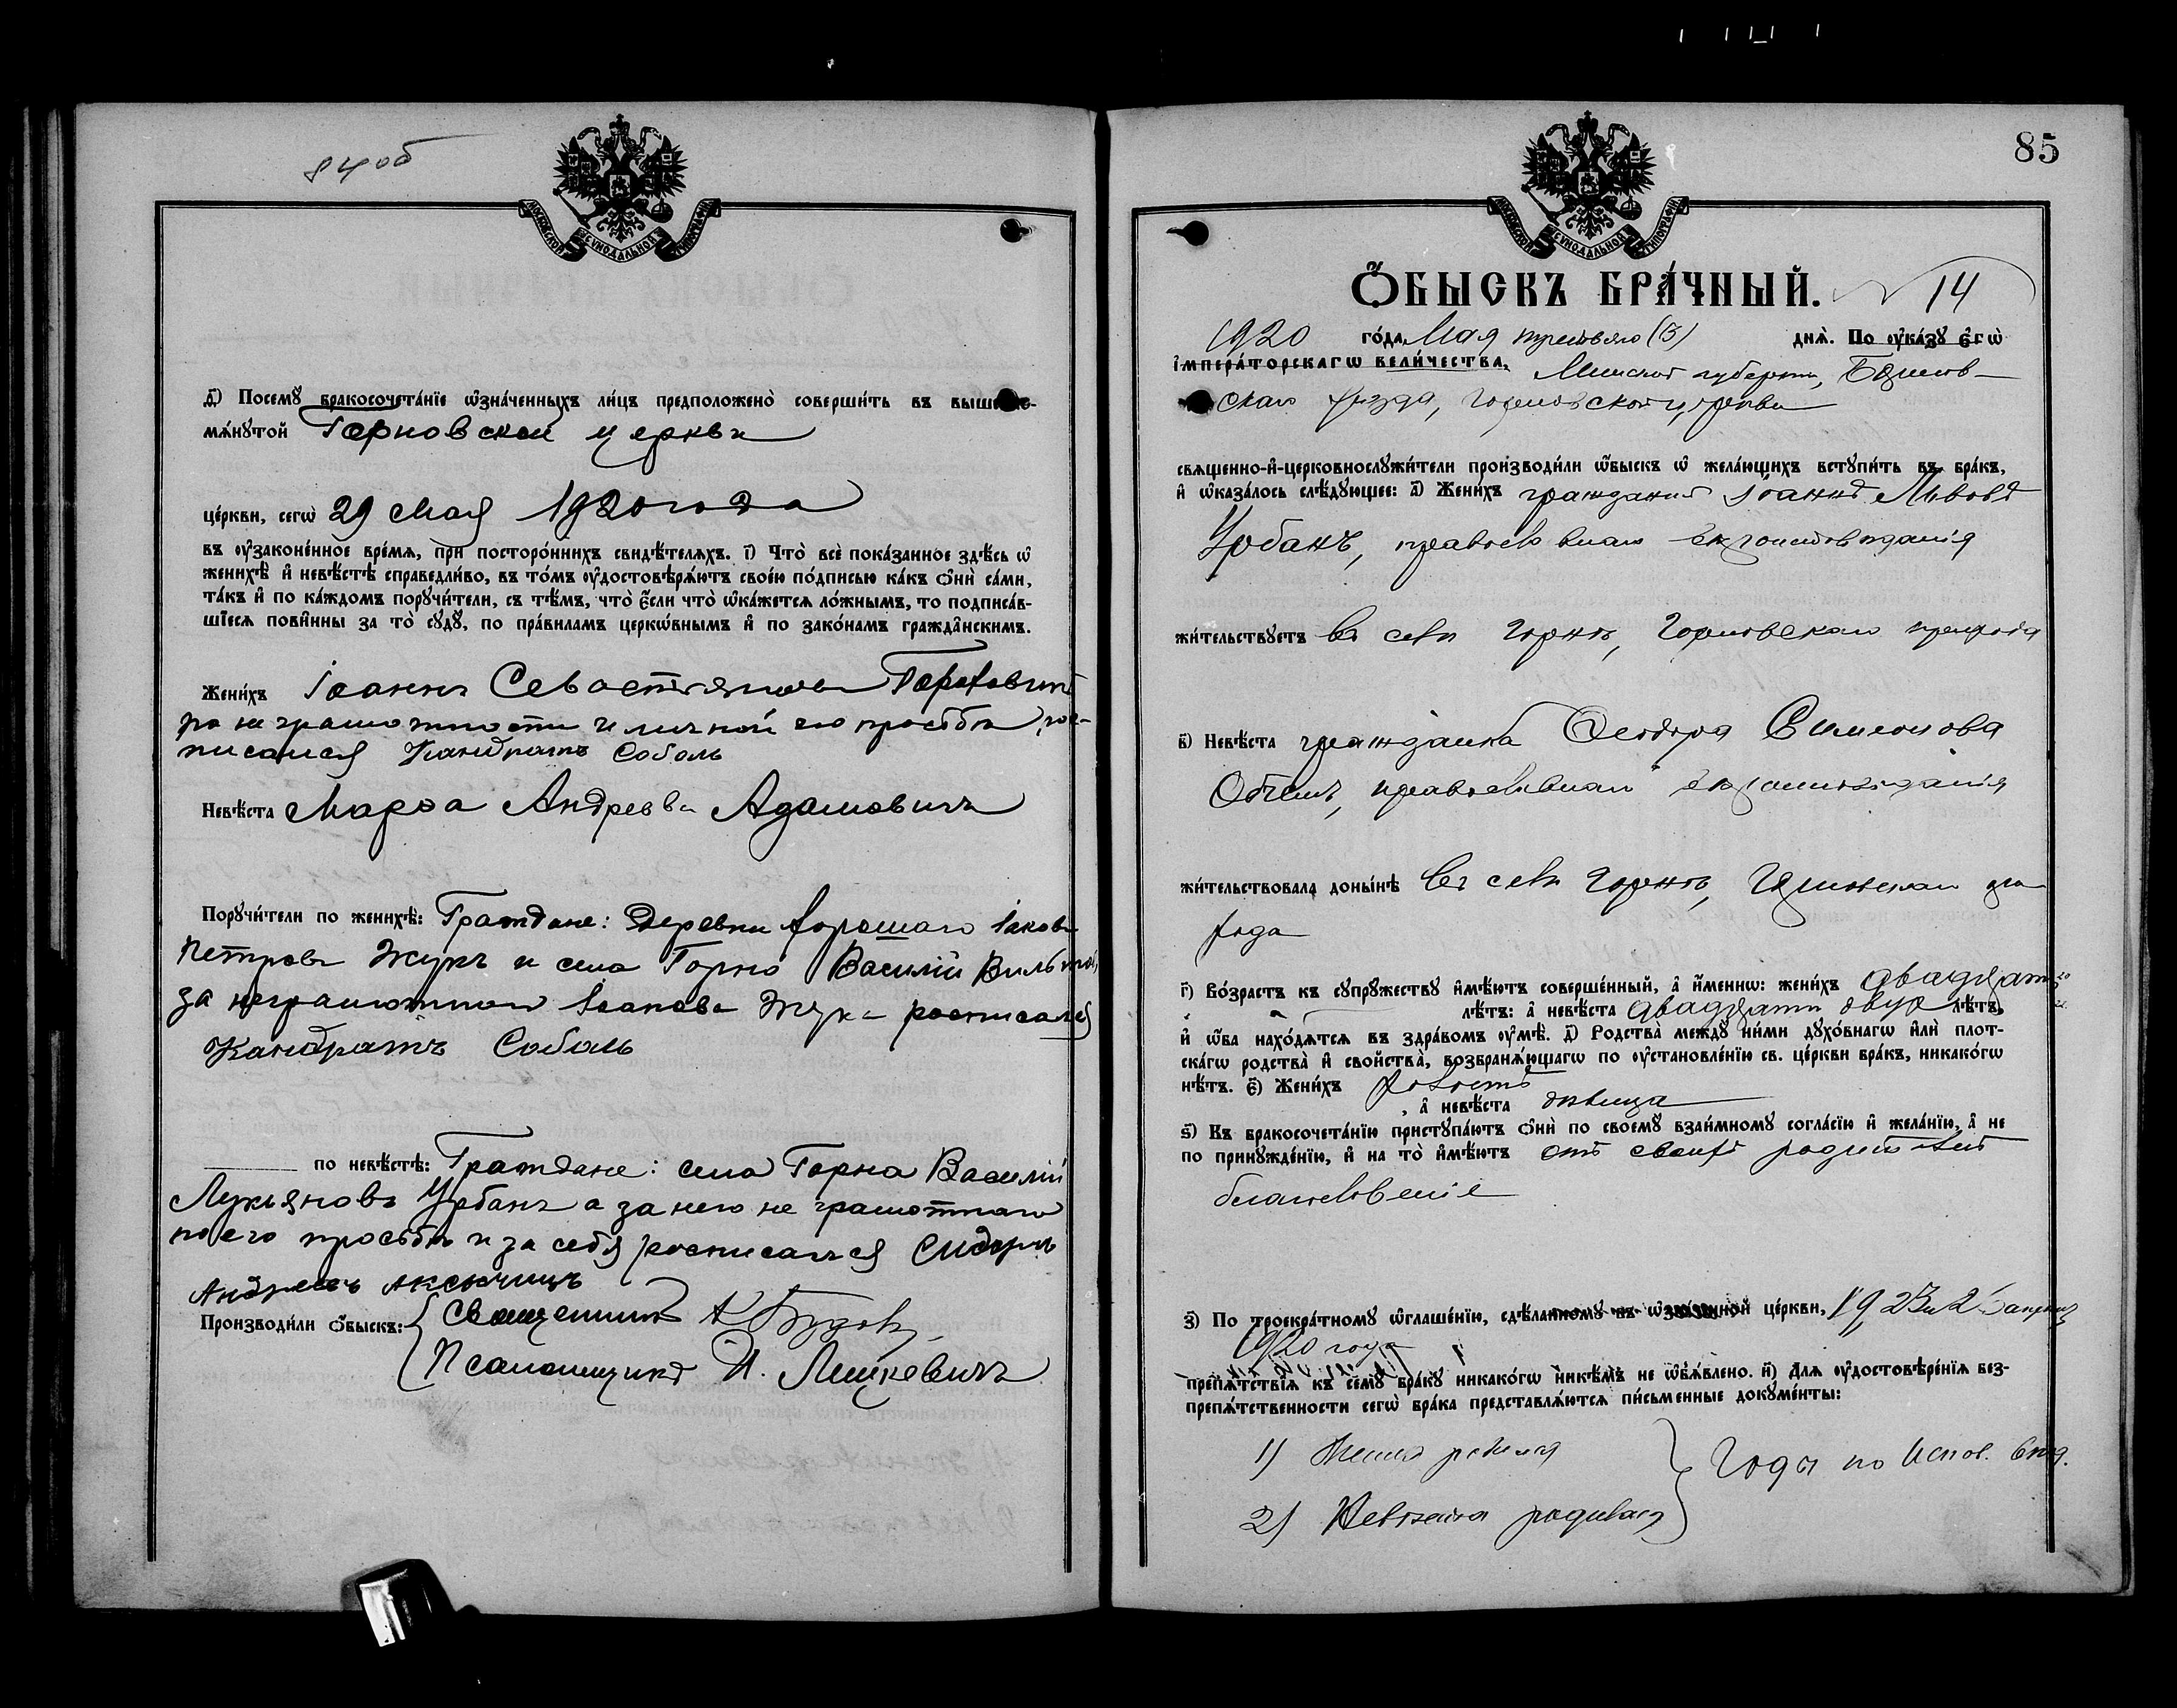 84 об
МОСКОВСКОЙ СѴНОДАЛЬНОЙ ТИПОГРАФІИ
д҃) Посемꙋ бракосочета́нїе ѡ҆зна́ченныхъ ли́цъ предположено̀ соверши́ть въ выше
мѧ́нꙋтой Горновской церкви
це́ркви, сегѡ̀ 29 Мая 1920 года
въ ᲂу҆законе́нное вре́мѧ, при посторо́ннихъ свидѣ́телѧхъ. і҃) Что̀ всѐ пока́занное здѣ́сь ѡ҆
женихѣ̀ и҆ невѣ́стѣ справедли́во, въ то́мъ ᲂу҆достовѣрѧ́ютъ свое́ю по́дписью ка́къ ѻ҆нѝ са́ми,
та́къ и҆ по ка́ждомъ порꙋчи́тели, съ тѣ́мъ, что̀ є҆́сли что̀ ѡ҆ка́жетсѧ ло́жнымъ, то подписа́в-
шїесѧ пови́нны за то̀ сꙋдꙋ̀, по пра́виламъ церкѡ́внымъ и҆ по зако́намъ гражда́нскимъ.
Жени́хъ Іоаннъ Севастьяновъ
по неграмотности и личной его просьбѣ, рос-
писался Кандратъ Соболь
Невѣ́ста Марѳа Андреева Адамовичъ
Порꙋчи́тели по женихѣ̀: Граждане: деревни Хорошаго Іаковъ
Петровъ Жукъ и села Горно Василій
за неграмотнаго Іакова Жука росписался
Кандратъ Соболь
по невѣ́стѣ: Граждане: села Горна Василій
Лукьяновъ Урбанъ а за него не грамотнаго
по его просьбѣ и за себя росписался Сидоръ
Андреевъ Аксючицъ
Производи́ли ѻ҆́быскъ: Священникъ
Псаломщикъ И. Лешкевичъ
85
МОСКОВСКОЙ СѴНОДАЛЬНОЙ ТИПОГРАФІИ
Ѻ҆́БЫСКЪ БРА́ЧНЫЙ. № 14
1920 го́да Мая третьяго (3) днѧ̀. По ᲂу҆ка́зꙋ є҆гѡ̀
і҆мпера́торскагѡ вели́чества, Минской губерніи, Борисов-
скаго уѣзда, Горновской церкви
свѧщенно-и҆-церковнослꙋжи́тели произво́дили ѡ҆́быскъ ѡ҆ жела́ющихъ встꙋпи́ть въ бра́къ,
и҆ ѡ҆каза́лось слѣ́дꙋющее: а҃) Жени́хъ гражданинъ Іоаннъ Львовъ
Урбанъ, православнаго вѣроисповѣданія
жи́тельствꙋетъ въ селѣ Горнѣ, Горновскаго прихода
в҃) Невѣ́ста гражданка Ѳеодора Симеонова
православнаго вѣроисповѣданія
жи́тельствовала доны́нѣ въ селѣ Горнѣ, Горновскаго при
хода
г҃) Во́зрастъ къ сꙋпрꙋ́жествꙋ и҆мѣ́ютъ соверше́нный, а҆ и҆́меннѡ: жени́хъ двадцати 20
лѣ́тъ: а҆ невѣ́ста двадцати двухъ лѣ́тъ,
и҆ ѻ҆́ба нахо́дѧтсѧ въ здра́вомъ ᲂу҆мѣ̀. д҃) Родства̀ междꙋ̀ ни́ми дꙋхо́внагѡ и҆лѝ плот-
ска́гѡ родства̀ и҆ сво́йства̀, возбранѧ́ющагѡ по ᲂу҆становле́нїю св. це́ркви бра́къ, никако́гѡ
нѣ́тъ. є҃) Жени́хъ холостъ
, а҆ невѣ́ста дѣвица
ѕ҃) Къ бракосочета́нїю пристꙋпа́ютъ ѻ҆нѝ по своемꙋ̀ взаи́мномꙋ согла́сїю и҆ жела́нїю, а҆ не
по принꙋжде́нїю, и҆ на то̀ и҆мѣ́ютъ отъ своихъ родителей
благословеніе
з҃) По троекра́тномꙋ ѡ҆глаше́нїю, сдѣ́ланномꙋ въ ѡ҆зна́ченной це́ркви,
1920 года
препѧ́тствїѧ къ семꙋ̀ бра́кꙋ никако́гѡ никѣ́мъ не ѡ҆б̾ѧ́влено. и҃) Длѧ ᲂу҆достовѣре́нїѧ без-
препѧ́тственности сегѡ̀ бра́ка представлѧ́ютсѧ пи́сьменные докꙋме́нты:
1) Женихъ родился
Годы по Испов. вѣд.
2) Невѣста родилась